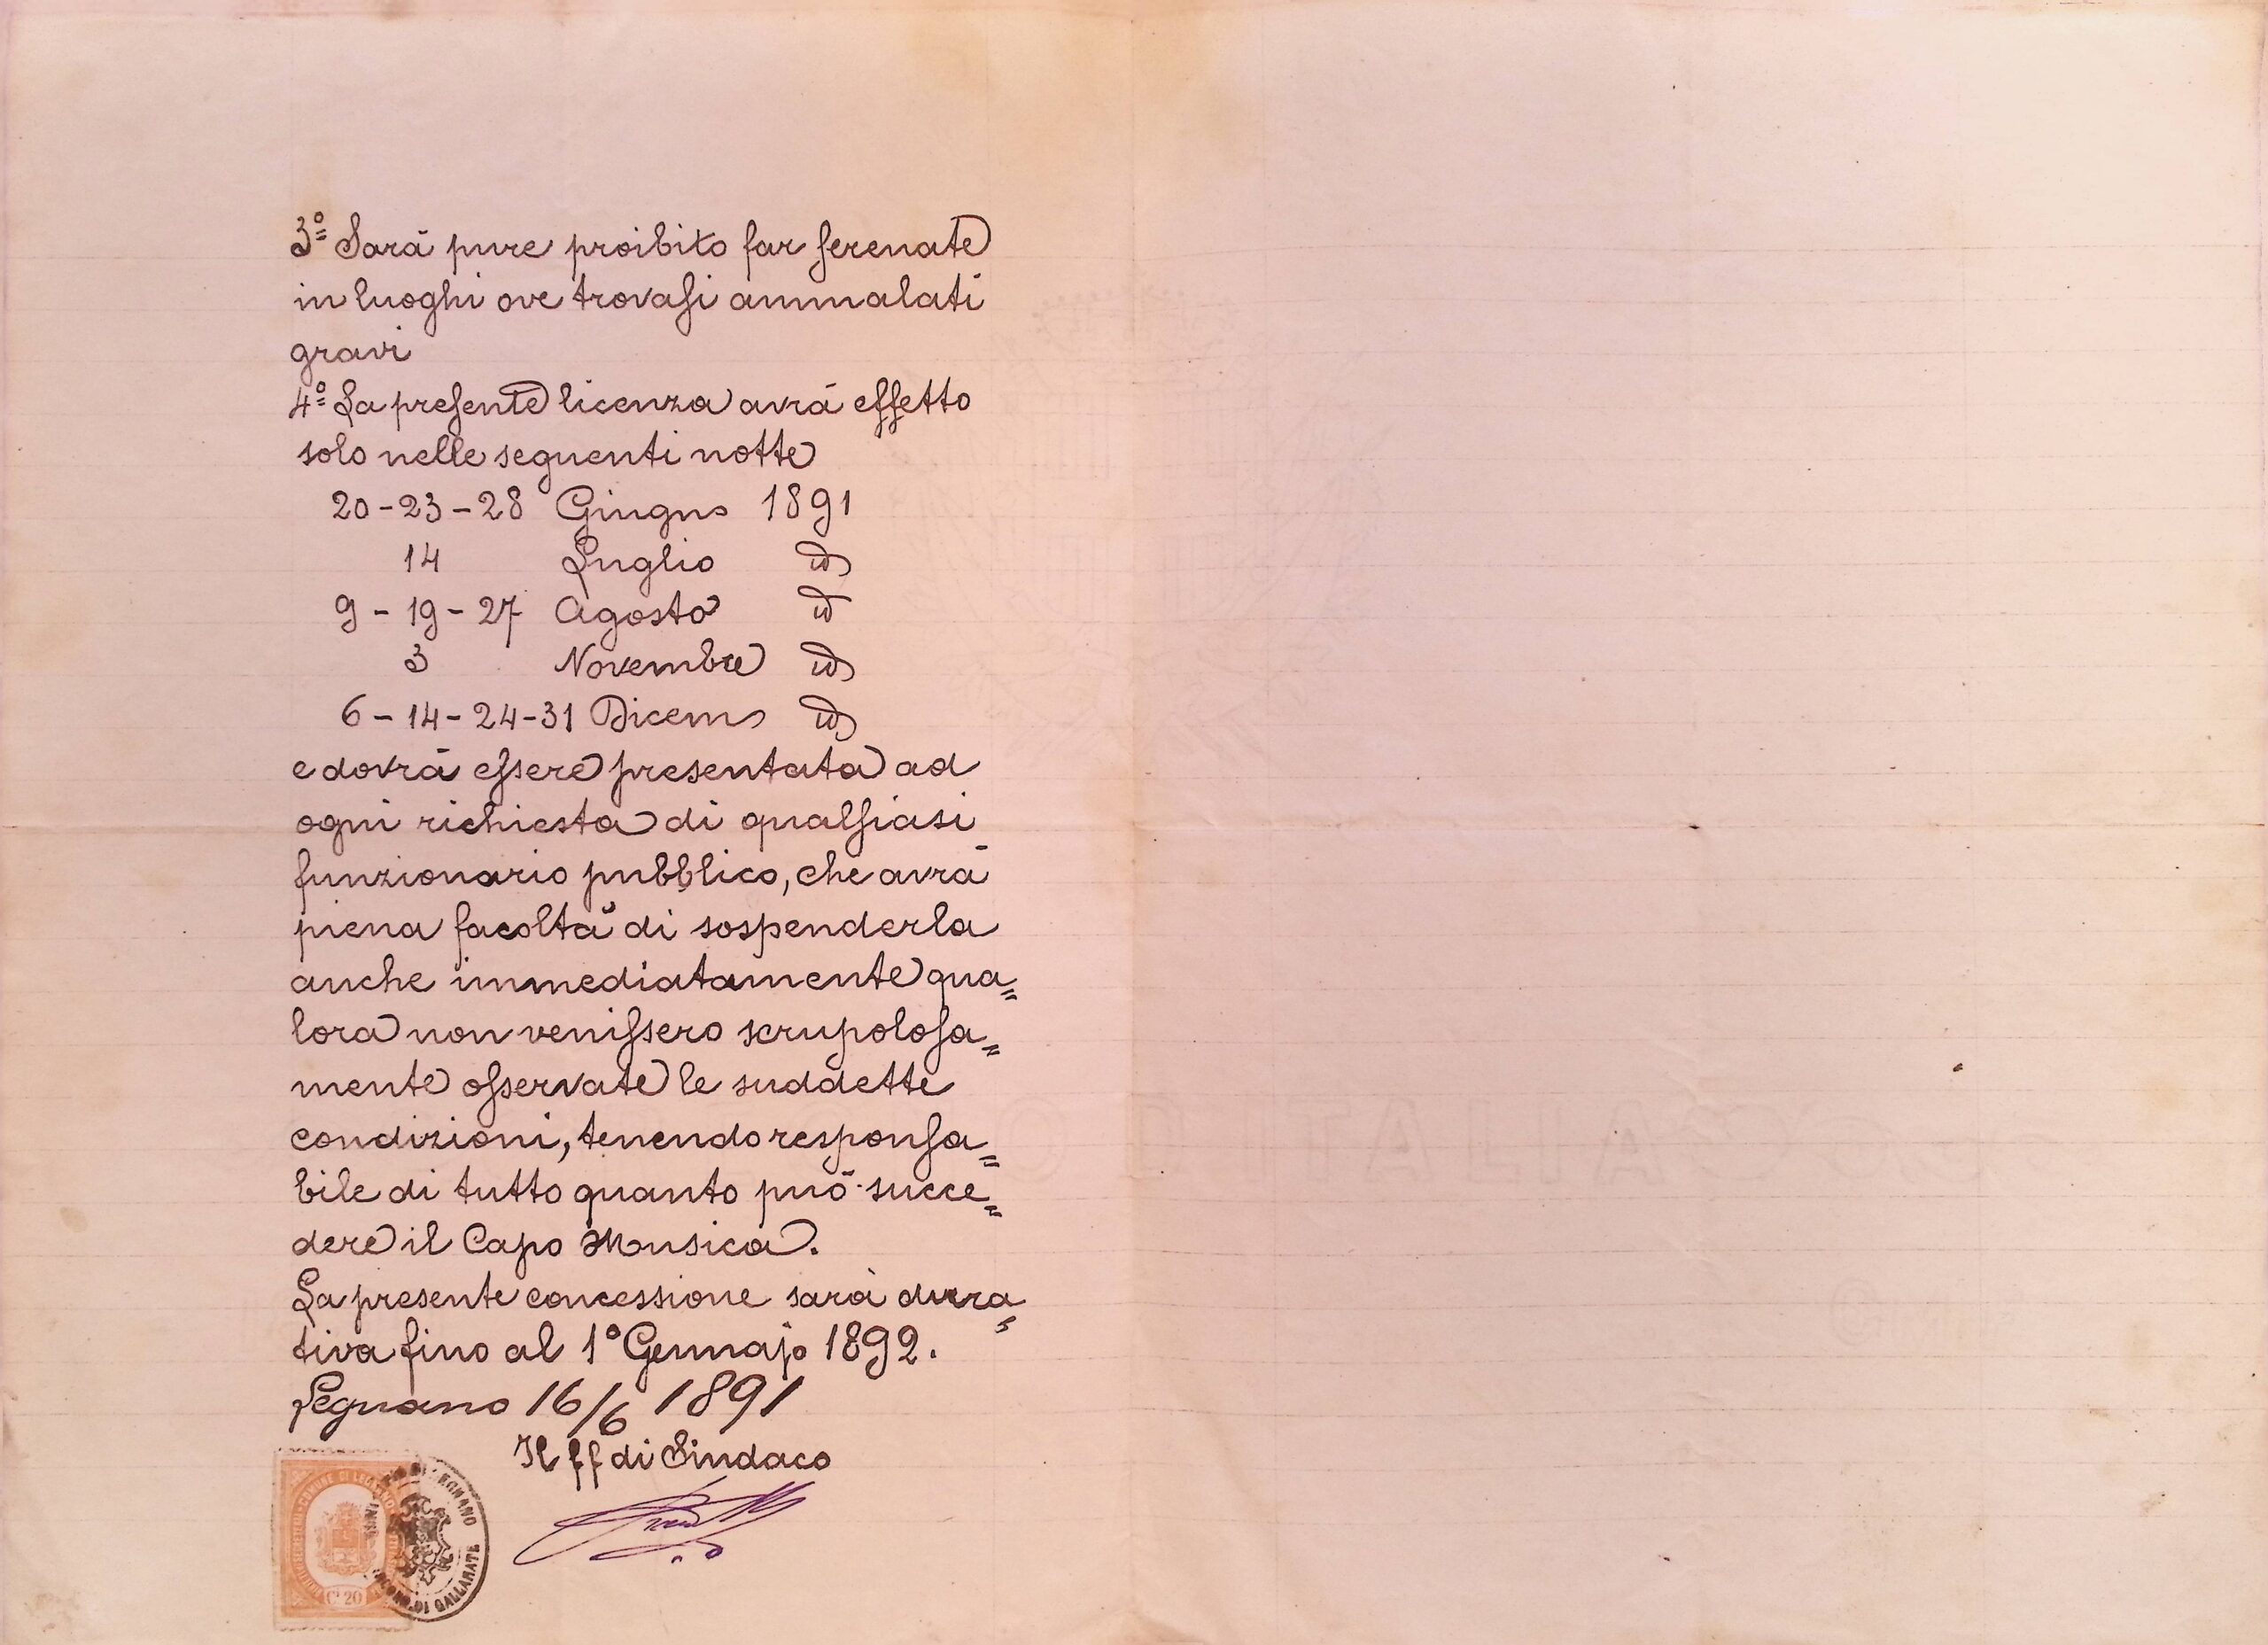 3º Sarà pure proibito far serenate
in luoghi ove trovasi ammalati
gravi
4º La presente licenza avrà effetto
solo nelle seguenti notte
20-23-28 Giugno 1891
14 Luglio id
9-19-27 Agosto id
3 Novembre id
6-14-24-31 Dicem id
e dovrà essere presentata ad
ogni richiesta di qualsiasi
funzionario pubblico, che avrà
piena facoltà di sospenderla
anche immediatamente qua=
lora non venissero scrupolosa=
mente osservate le suddette
condizioni, tenendo responsa=
bile di tutto quanto può succe=
dere il Capo Musica.
La presente concessione sarà dura=
tiva fino al 1º Gennajo 1892.
Legnano 16/6 1891
Il ff di Sindaco
COMUNE DI LEGNANO
C. 20
DI GALLARATE